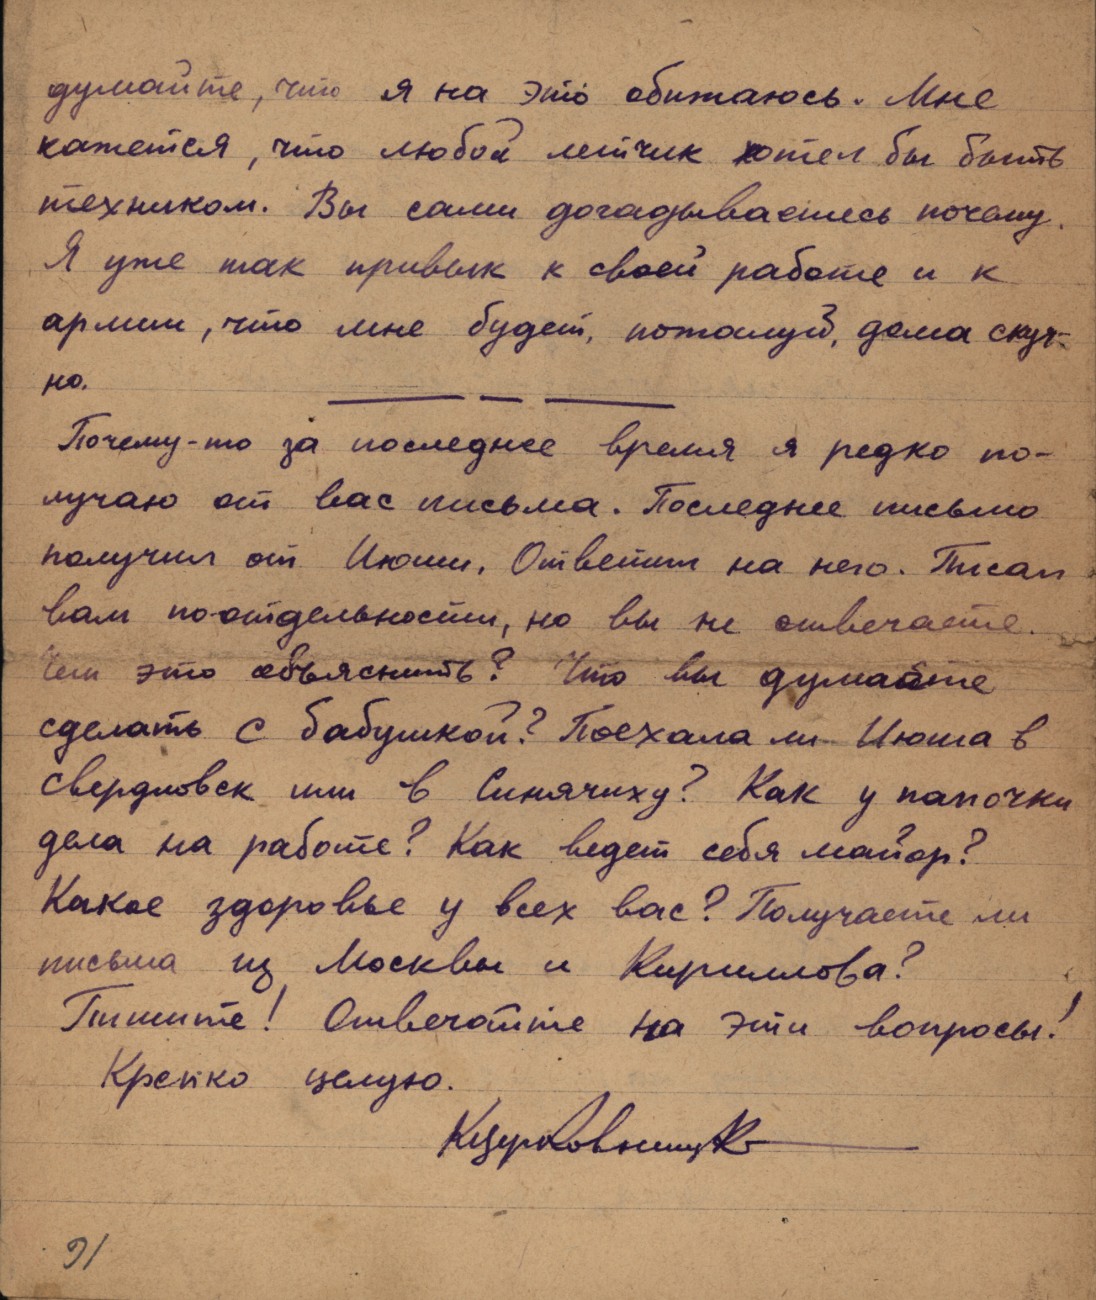 думайте, что я на это обижаюсь. Мне
кажется, что любой летчик хотел бы быть
техником. Вы сами догадываетесь почему.
Я уже так привык к своей работе и к
армии, что мне будет, пожалуй, дома скуч-
но.
Почему-то за последнее время я редко по-
лучаю от вас письма. Последнее письмо
получил от Июши. Ответил на него. Писал
вам по-отдельности, но вы не отвечаете.
Чем это объяснить? Что вы думаете
сделать с бабушкой? Поехала ли Июша в
Свердловск или в Синячиху? Как у папочки
дела на работе? Как ведет себя майор?
Какое здоровье у всех вас? Получаете ли
письма из Москвы и Кириллова?
Пишите! Отвечайте на эти вопросы!
Крепко целую.
91